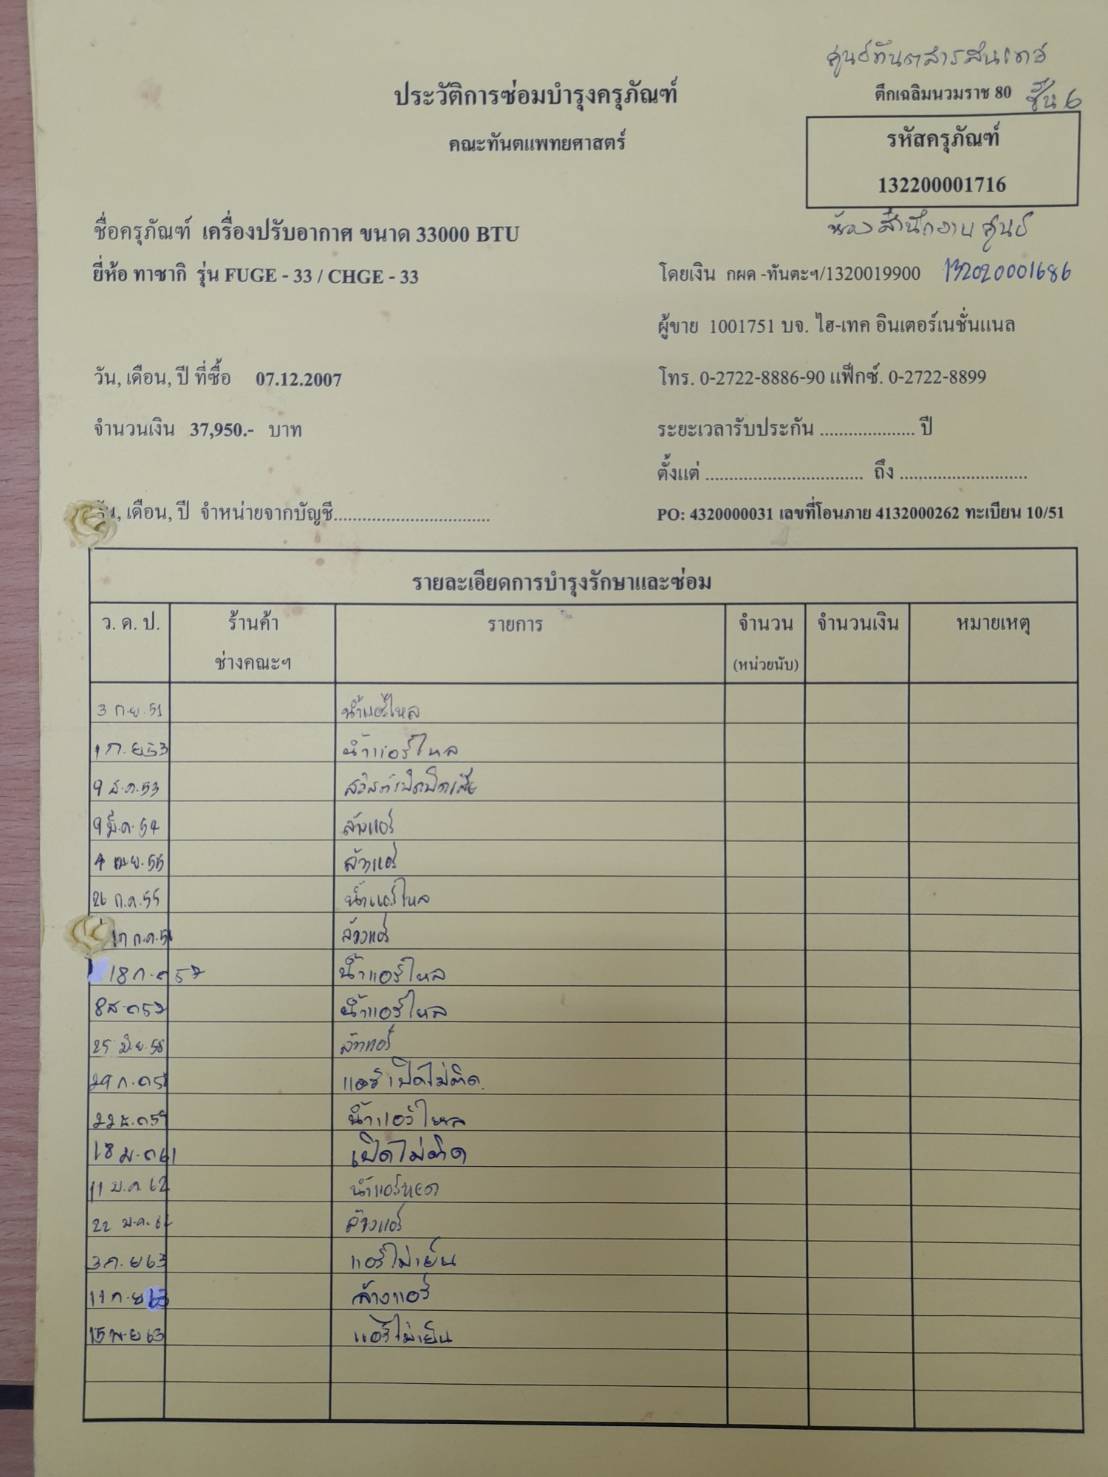 ศูนย์ทันตสารสนเทศ
ประวัติการซ่อมบำรุงครุภัณฑ์
ตึกเฉลิมนวมราช 80 ชั้น 6
คณะทันตแพทยศาสตร์
รหัสครุภัณฑ์
132200001716
ห้องสำนักงานศูนย์
ชื่อครุภัณฑ์ เครื่องปรับอากาศ ขนาด 33000 BTU
ยี่ห้อ ทาซากิ รุ่น FUGE - 33 / CHGE - 33
โดยเงิน กผด -ทันตะฯ/1320019900 132020001686
ผู้ขาย 1001751 บจ. ไฮ-เทค อินเตอร์เนชั่นแนล
วัน, เดือน, ปี ที่ซื้อ 07.12.2007
โทร. 0-2722-8886-90 แฟ็กซ์. 0-2722-8899
จำนวนเงิน 37,950.- บาท
ระยะเวลารับประกัน ................... ปี
ตั้งแต่ ............................. ถึง ..........................
วัน, เดือน, ปี จำหน่ายจากบัญชี................................
PO: 4320000031 เลขที่โอนภาย 4132000262 ทะเบียน 10/51
รายละเอียดการบำรุงรักษาและซ่อม
ว. ด. ป. ร้านค้า รายการ จำนวน จำนวนเงิน หมายเหตุ
ช่างคณะฯ (หน่วยนับ)
3 ก.ย. 51 น้ำแอร์ไหล
1 ก. ย 53 น้ำแอร์ไหล
9 ส.ค. 53 สวิสต์เปิดปิดเสีย
9 มี.ค. 54 ล้างแอร์
4 เม.ย. 55 ล้างแอร์
26 ก.ค. 55 น้ำแอร์ไหล
ก.ค. ล้างแอร์
18 ก.ค 57 น้ำแอร์ไหล
8 ส.ค 57 น้ำแอร์ไหล
25 มิ.ย. 58 ล้างแอร์
29 ก.ค แอร์เปิดไม่ติด
22 น้ำแอร์ไหล
18 ม.ค 61 เปิดไม่ติด
11 ม.ค 62 น้ำแอร์หยด
22 ม.ค. 62 ล้างแอร์
3 ก. ย 63 แอร์ไม่เย็น
11 ก. ย 63 ล้างแอร์
15 พ.ย 63 แอร์ไม่เย็น